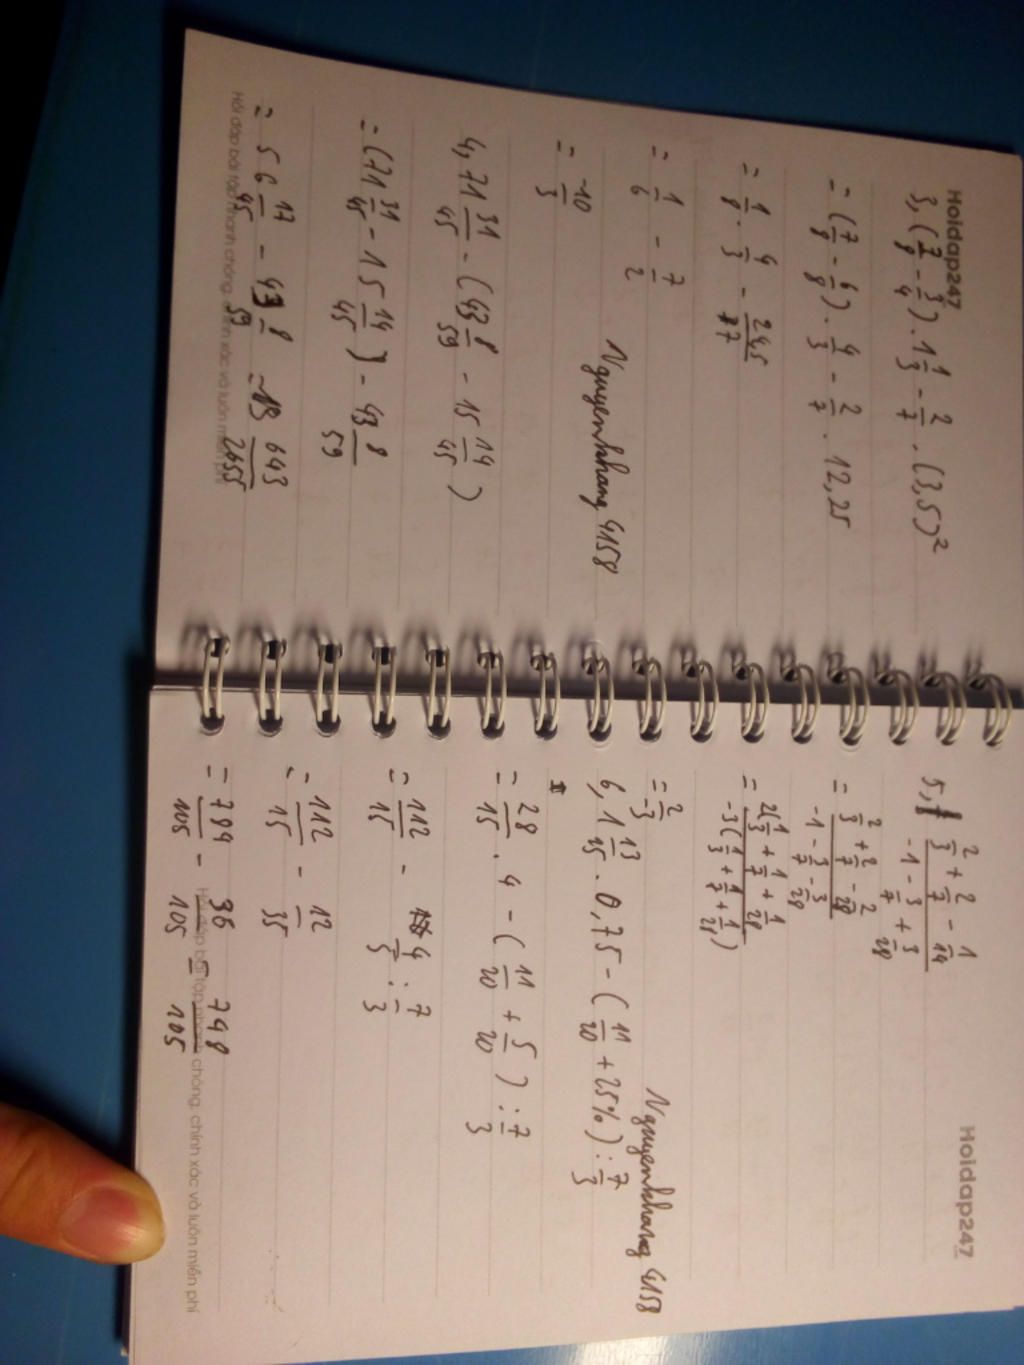 Hoidap247
3, (7/8 - 3/4) . 1 1/3 - 2/7 . (3,5)²
= (7/8 - 6/8) . 4/3 - 2/7 . 12,25
= 1/8 . 4/3 - 245/77
= 1/6 - 7/2
= -10/3
Nguyenkhang 4158
4, 71 31/45 - (43 8/59 - 15 14/45)
= (71 31/45 - 15 14/45) - 43 8/59
= 56 17/45 - 43 8/59 = 13 643/2655
Hỏi đáp bài tập nhanh chóng, chính xác và luôn miễn phí
Hoidap247
5, (2/3 + 2/7 - 1/14)/(-1 - 3/7 + 3/28)
= (2/3 + 2/7 - 2/28)/(-1 - 3/7 - 3/28)
= 2(1/3 + 1/7 + 1/28)/-3(1/3 + 1/7 + 1/28)
= 2/-3
Nguyenkhang 4158
6, 1 13/15 . 0,75 - (11/20 + 25%) : 7/3
= 28/15 . 4 - (11/20 + 5/20) : 7/3
= 112/15 - 4/5 : 7/3
= 112/15 - 12/35
= 784/105 - 36/105 = 748/105
Hỏi đáp bài tập nhanh chóng, chính xác và luôn miễn phí